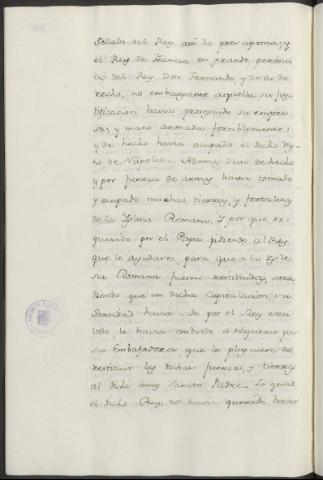 sellado del Rey, assi lo presuponia, y
el Rey de Francia en grande perjui
cio del Rey Don Fernando, y de su de
recho, no embargante aquella su jus
tificacion havia proseguido su empre
sa, y mano armada forciblemente,
y de hecho havia ocupado el dicho Rey
no de Napoles. Ademas desto de hecho
y por fuerza de armas havia tomado
y ocupado muchas tierras, y fortalezas
de la Yglesia Romana, Y por que re
querido por el Papa pidiendo al Rey
que le ayudase, para que a la Ygle
sia Romana fuesen restituidas, aten
diendo que en dicha Capitulacion su
Santidad havia sido por el Rey exce
tado, le havia embiado a requerir por
sus Embajadores, que le pluguiere de
restituir las dichas fuerzas, y tierras
al dicho muy Sancto Padre. Lo qual
el dicho Rey, no havia querido hacer